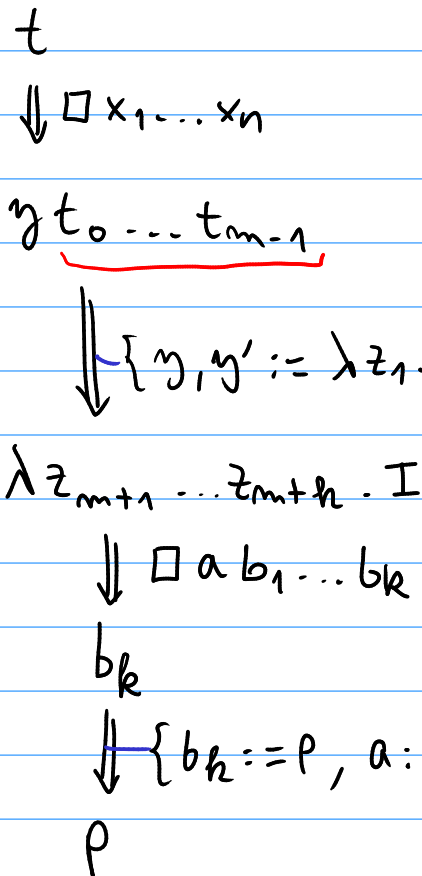 t
⇓ □ x₁ … xₙ
y t₀ … tₘ₋₁
⇓ { y, y' := λ z₁.
λ z_{m+1} … z_{m+k} . I
⇓ □ a b₁ … b_k
b_k
⇓ { b_k := P, a :
P